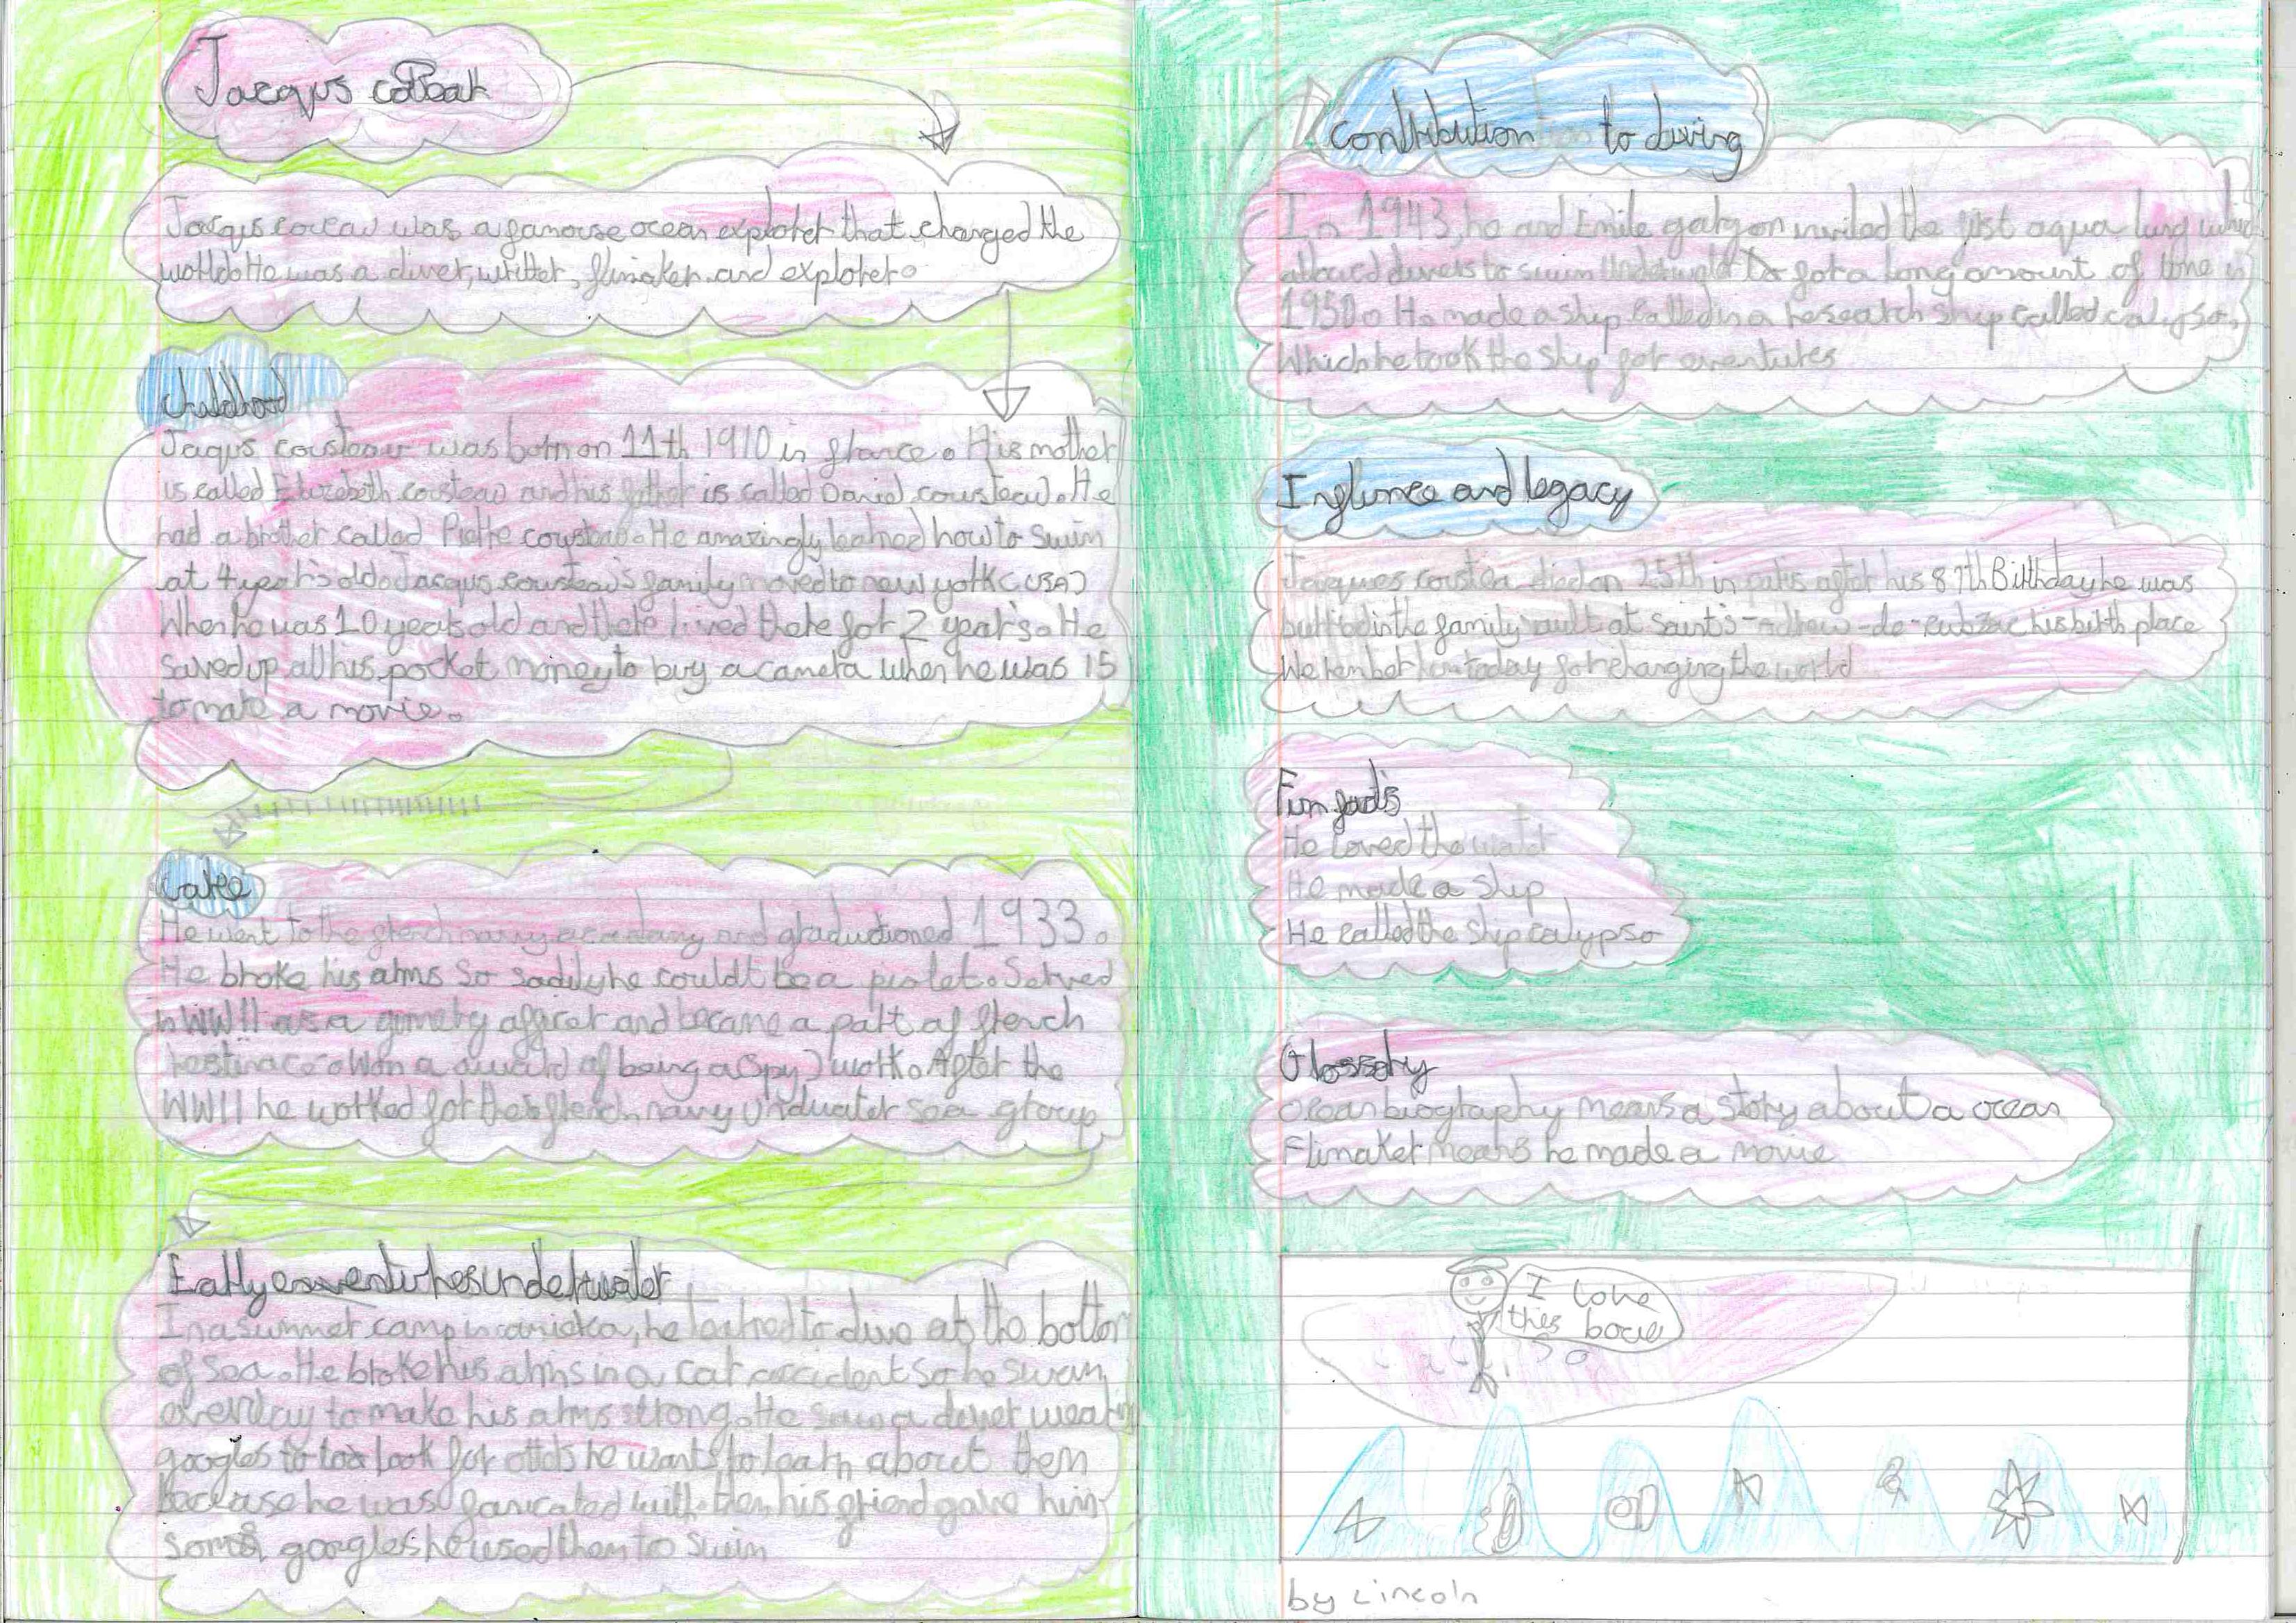 Jacqus
Jacqus coueau was a famouse ocean explorer that changed the
world. He was a diver, writter, flimaker and explorer.
childhood
Jaqus cousteau was born on 11th 1910 in france. His mother
is called Elizebeth cousteau and his father is called Daniel cousteau. He
had a brother called Pierre cousteau. He amazingly learned how to swim
at 4 year's old. Jacqus cousteau's family moved to new york (USA)
When he was 10 years old and there lived there for 2 year's. He
saved up all his pocket money to buy a camera when he was 15
to make a movie.
caree
He went to the french navy acadamy and graductioned 1933.
He broke his arms So sadily he couldt be a piolet. Served
in WW11 as a gunnery officer and became a part of french
restinace. Won a award of being a (spy) work. After the
WW11 he worked for the french navy undwater sea group
Early underwater
In a summer camp in, he learned to dive at the bottom
of sea. He broke his arms in a car accident so he swam
everyday to make his arms strong. He saw a diver wearing
googles to look for he wants to learn about them
because he was fanicated with them his friend gave him
some googles he used them to swim
contribution to diving
In 1943, he and Emile gangon invited the first aqua lung which
allowed divers to swim underwater for a long amount of time in
1950. He made a ship called in a research ship called calypso,
Which he took the ship for aventures
Influnce and legacy
Jacques coustea died on 25th in paris after his 87th Birthday he was
burried in the family vault at saint's-andrew-de-cubzac his birth place
We rember him today for changing the world
Fun fact's
He loved the water
He made a ship
He called the ship calypso
Glossory
Ocean biography means a story about a ocean
Flimaker means he made a movie
I love
this
by Lincoln